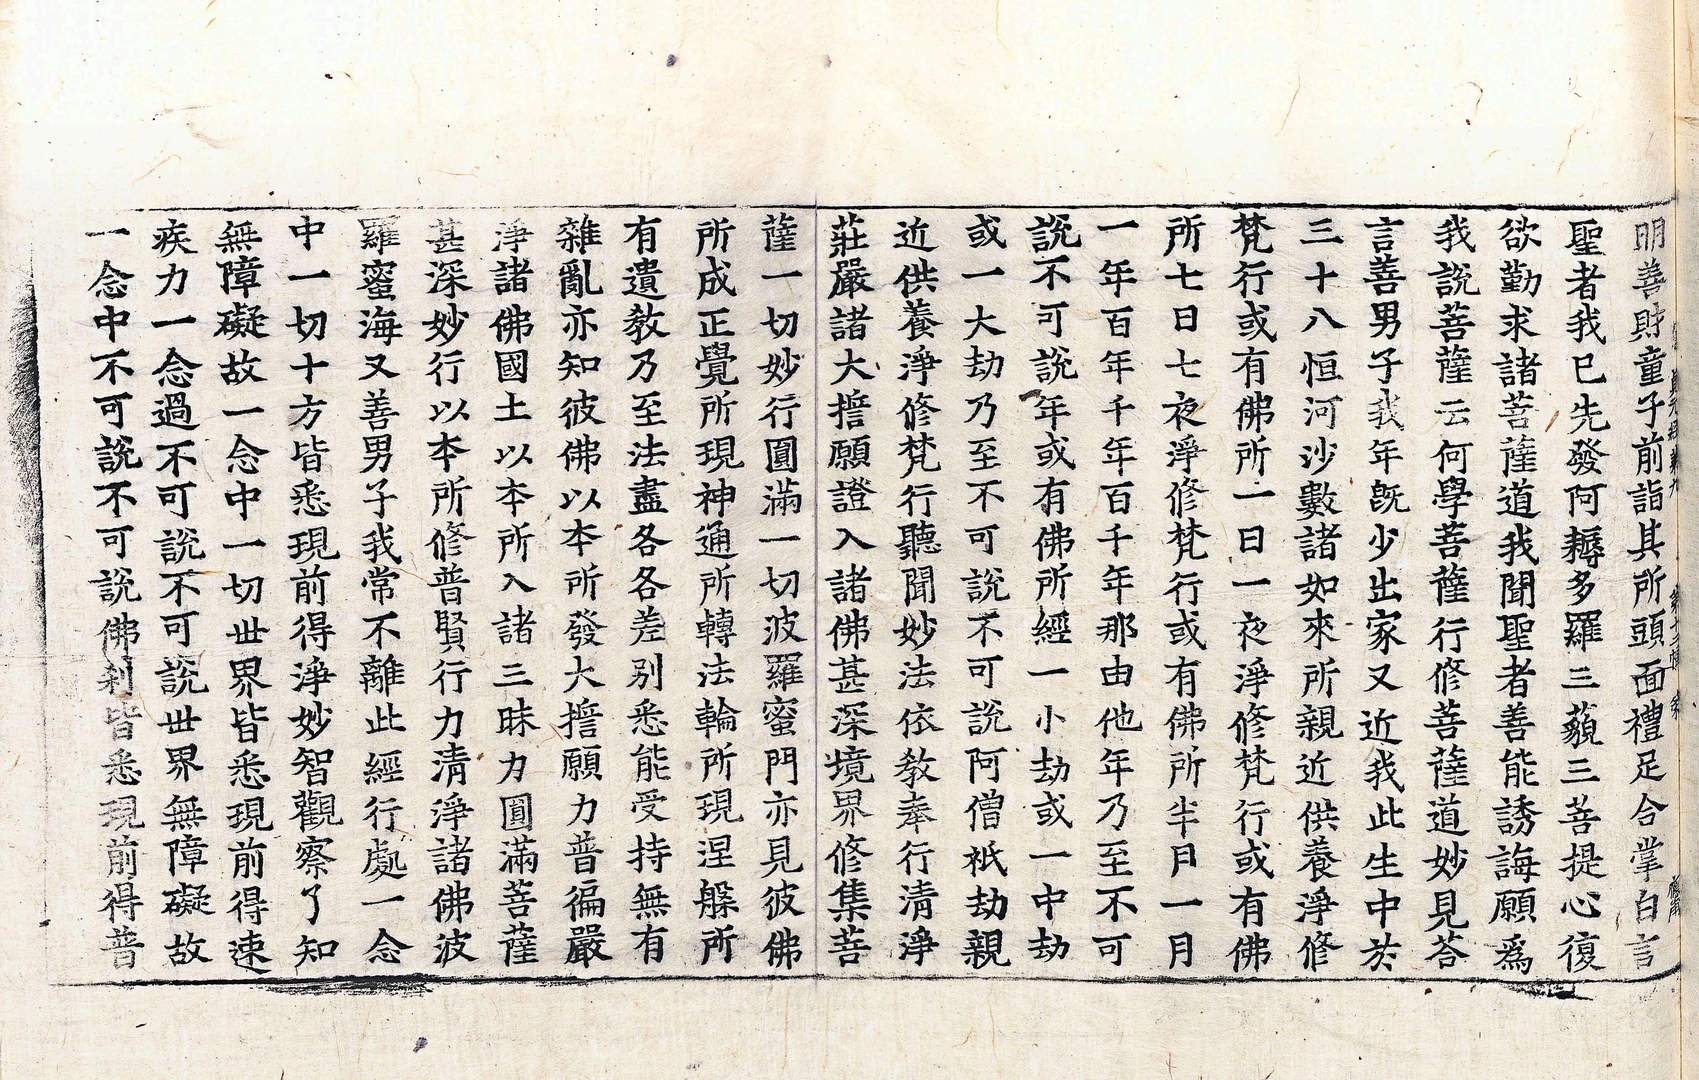 明善財童子前詣其所頭面禮足合掌白言
聖者我已先發阿耨多羅三藐三菩提心復
欲勤求諸菩薩道我聞聖者善能誘誨願爲
我說菩薩云何學菩薩行修菩薩道妙見荅
言善男子我年旣少出家又近我此生中於
三十八恒河沙數諸如來所親近供養淨修
梵行或有佛所一日一夜淨修梵行或有佛
所七日七夜淨修梵行或有佛所半月一月
一年百年千年百千年那由他年乃至不可
說不可說年或有佛所經一小劫或一中劫
或一大劫乃至不可說不可說阿僧祇劫親
近供養淨修梵行聽聞妙法依教奉行清淨
莊嚴諸大擔願證入諸佛甚深境界修集菩
薩一切妙行圓滿一切波羅蜜門亦見彼佛
所成正覺所現神通所轉法輪所現涅槃所
有遺教乃至法盡各各差別悉能受持無有
雜亂亦知彼佛以本所發大擔願力普徧嚴
淨諸佛國土以本所入諸三昧力圓滿菩薩
甚深妙行以本所修普賢行力清淨諸佛波
羅蜜海又善男子我常不離此經行處一念
中一切十方皆悉現前得淨妙智觀察了知
無障礙故一念中一切世界皆悉現前得速
疾力一念過不可說不可說世界無障礙故
一念中不可說不可說佛刹皆悉現前得普